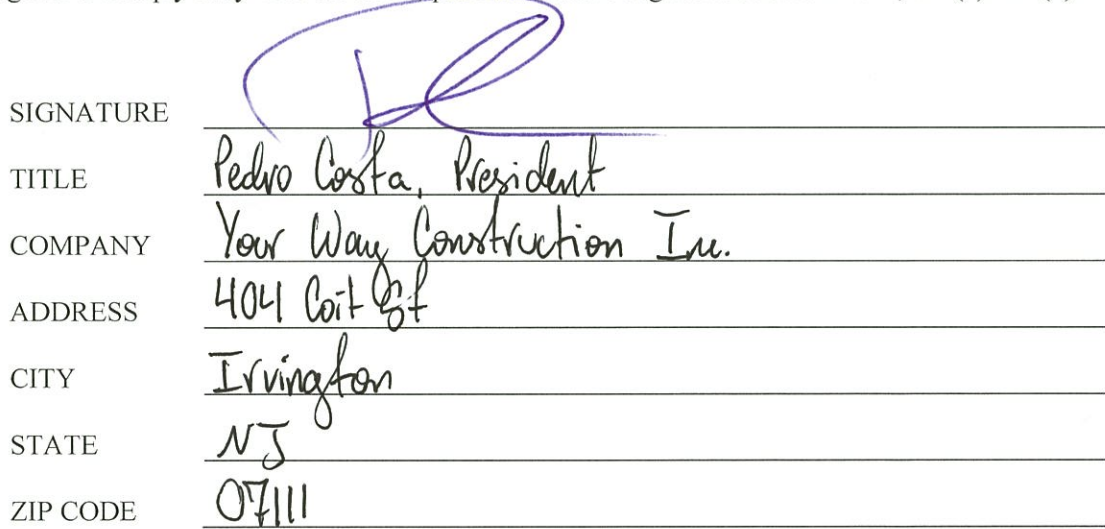 SIGNATURE
TITLE Pedro Costa, President
COMPANY Your Way Construction Inc.
ADDRESS 404 Coit St
CITY Irvington
STATE NJ
ZIP CODE 07111